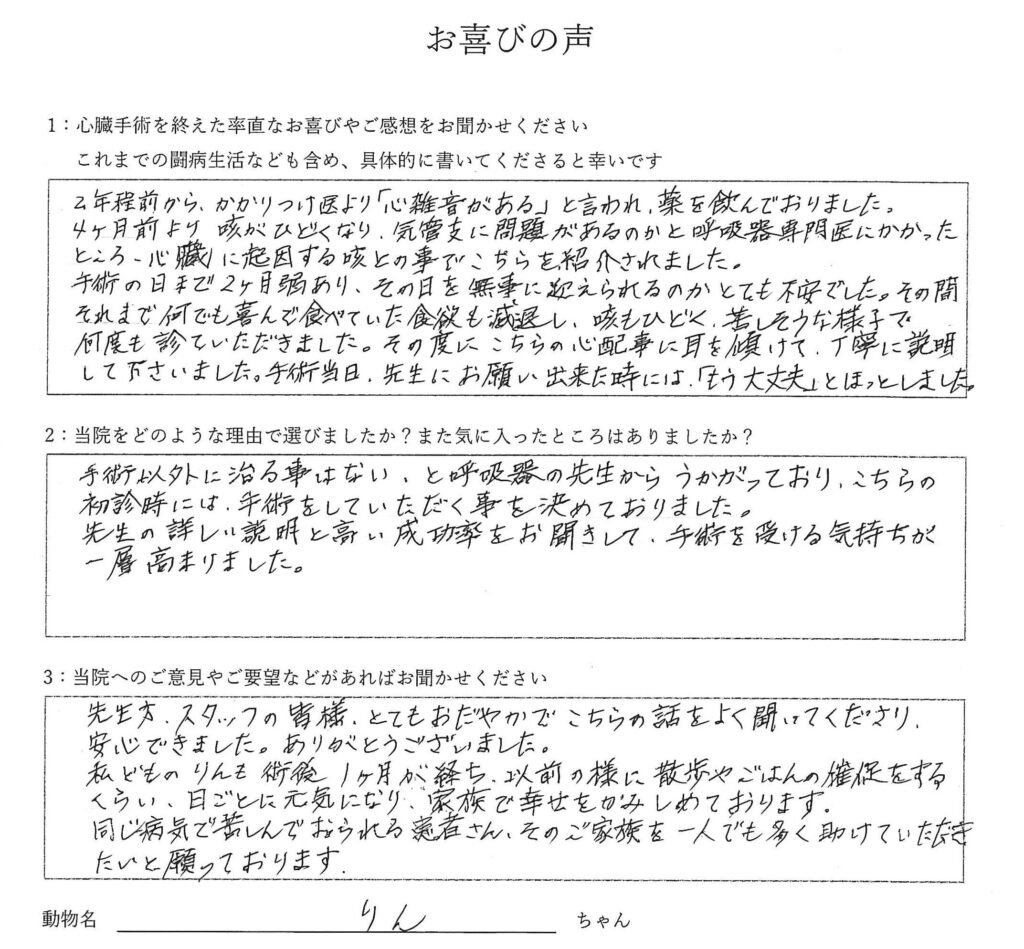 お喜びの声
1：心臓手術を終えた率直なお喜びやご感想をお聞かせください
これまでの闘病生活なども含め、具体的に書いてくださると幸いです
2年程前から、かかりつけ医より「心雑音がある」と言われ、薬を飲んでおりました。
4ヶ月前より 咳がひどくなり、気管支に問題があるのかと呼吸器専門医にかかった
ところ、心臓に起因する咳との事でこちらを紹介されました。
手術の日まで2ヶ月弱あり、その日を無事に迎えられるのかとても不安でした。その間
それまで何でも喜んで食べていた食欲も減退し、咳もひどく、苦しそうな様子で
何度も診ていただきました。その度にこちらの心配事に耳を傾けて、丁寧に説明
して下さいました。手術当日、先生にお願い出来た時には、「もう大丈夫」とほっとしました。
2：当院をどのような理由で選びましたか？また気に入ったところはありましたか？
手術以外に治る事はない、と呼吸器の先生からうかがっており、こちらの
初診時には、手術をしていただく事を決めておりました。
先生の詳しい説明と高い成功率をお聞きして、手術を受ける気持ちが
一層高まりました。
3：当院へのご意見やご要望などがあればお聞かせください
先生方、スタッフの皆様、とてもおだやかでこちらの話をよく聞いてくださり、
安心できました。ありがとうございました。
私どものりんも術後1ヶ月が経ち、以前の様に散歩やごはんの催促をする
くらい、日ごとに元気になり、家族で幸せをかみしめております。
同じ病気で苦しんでおられる患者さん、そのご家族を一人でも多く助けていただき
たいと願っております。
動物名 りん ちゃん